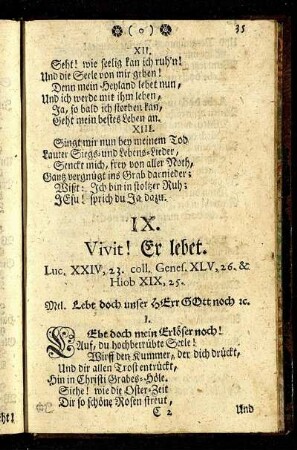 ( o ) 35
XII.
Seht! wie seelig kan ich ruh'n!
Und die Seele von mir geben!
Denn mein Heyland lebet nun,
Und ich werde mit ihm leben,
Ja, so bald ich sterben kan,
Geht mein bestes Leben an.
XIII.
Singt mir nun bey meinem Tod
Lauter Siegs- und Lebens-Lieder,
Senckt mich, frey von aller Noth,
Gantz vergnügt ins Grab darnieder;
Wißt: Ich bin in stoltzer Ruh;
JEsu! sprich du Ja dazu.
IX.
Vivit! Er lebet.
Luc. XXIV, 23. coll. Genes. XLV, 26. &
Hiob XIX, 25.
Mel. Lebt doch unser HErr GOtt noch ꝛc.
I.
LEbt doch mein Erlöser noch!
Auf, du hochbetrübte Seele!
Wirff den Kummer, der dich drückt,
Und dir allen Trost entrückt,
Hin in Christi Grabes-Höle.
Siehe! wie die Oster-Zeit
Dir so schöne Rosen streut,
C 2 Und